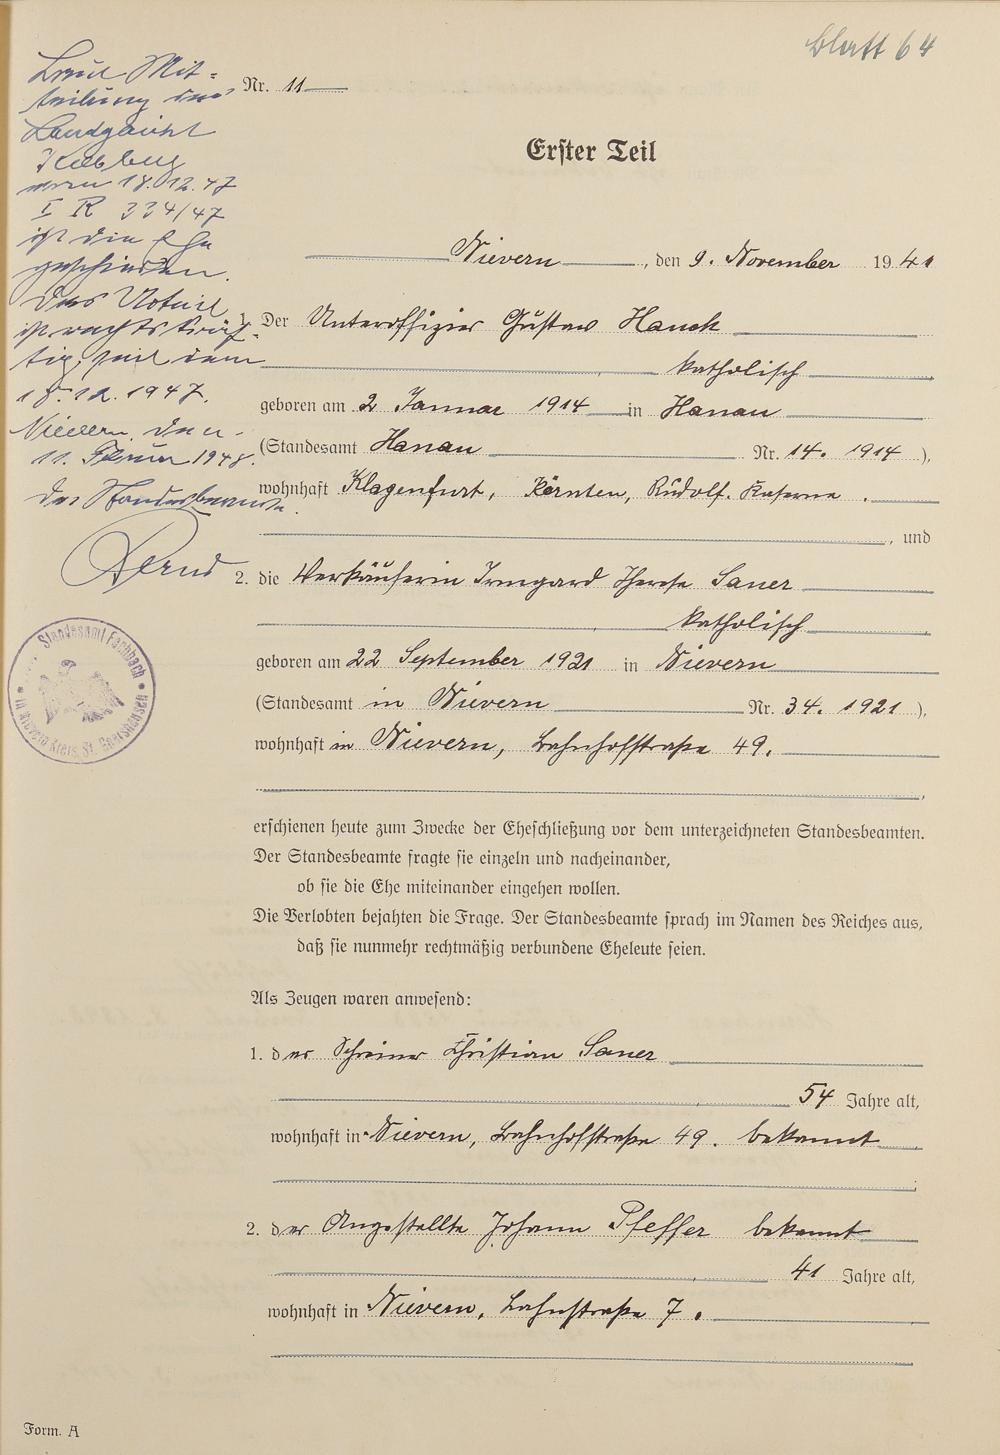 Blatt 64
Laut Mit-
teilung des
Landgericht
Koblenz
vom 18.12.47
I R 334/47
ist die Ehe
geschieden.
Das Urteil
ist rechtskräf-
tig seit dem
18.12.1947.
Nievern, den
11. Februar 1948.
Der Standesbeamte.
Standesamt Fachbach
in Nievern Kreis St. Goarshausen
Nr. 11
Erster Teil
Nievern, den 9. November 1941
1. Der Unteroffizier Gustav Hauck
katholisch
geboren am 2 Januar 1914 in Hanau
(Standesamt Hanau Nr. 14. 1914 ),
wohnhaft Klagenfurt, Kärnten, Rudolf. Kaserne .
, und
2. die Verkäuferin Irmgard Therese Sauer
katholisch
geboren am 22 September 1921 in Nievern
(Standesamt in Nievern Nr. 34. 1921 ),
wohnhaft in Nievern, Bahnhofstraße 49.
erschienen heute zum Zwecke der Eheschließung vor dem unterzeichneten Standesbeamten.
Der Standesbeamte fragte sie einzeln und nacheinander,
ob sie die Ehe miteinander eingehen wollen.
Die Verlobten bejahten die Frage. Der Standesbeamte sprach im Namen des Reiches aus,
daß sie nunmehr rechtmäßig verbundene Eheleute seien.
Als Zeugen waren anwesend:
1. der Schreiner Christian Sauer
54 Jahre alt,
wohnhaft in Nievern, Bahnhofstraße 49. bekannt
2. der Angestellte Johann Pfeffer bekannt
41 Jahre alt,
wohnhaft in Nievern, Lahnstraße 7.
Form. A